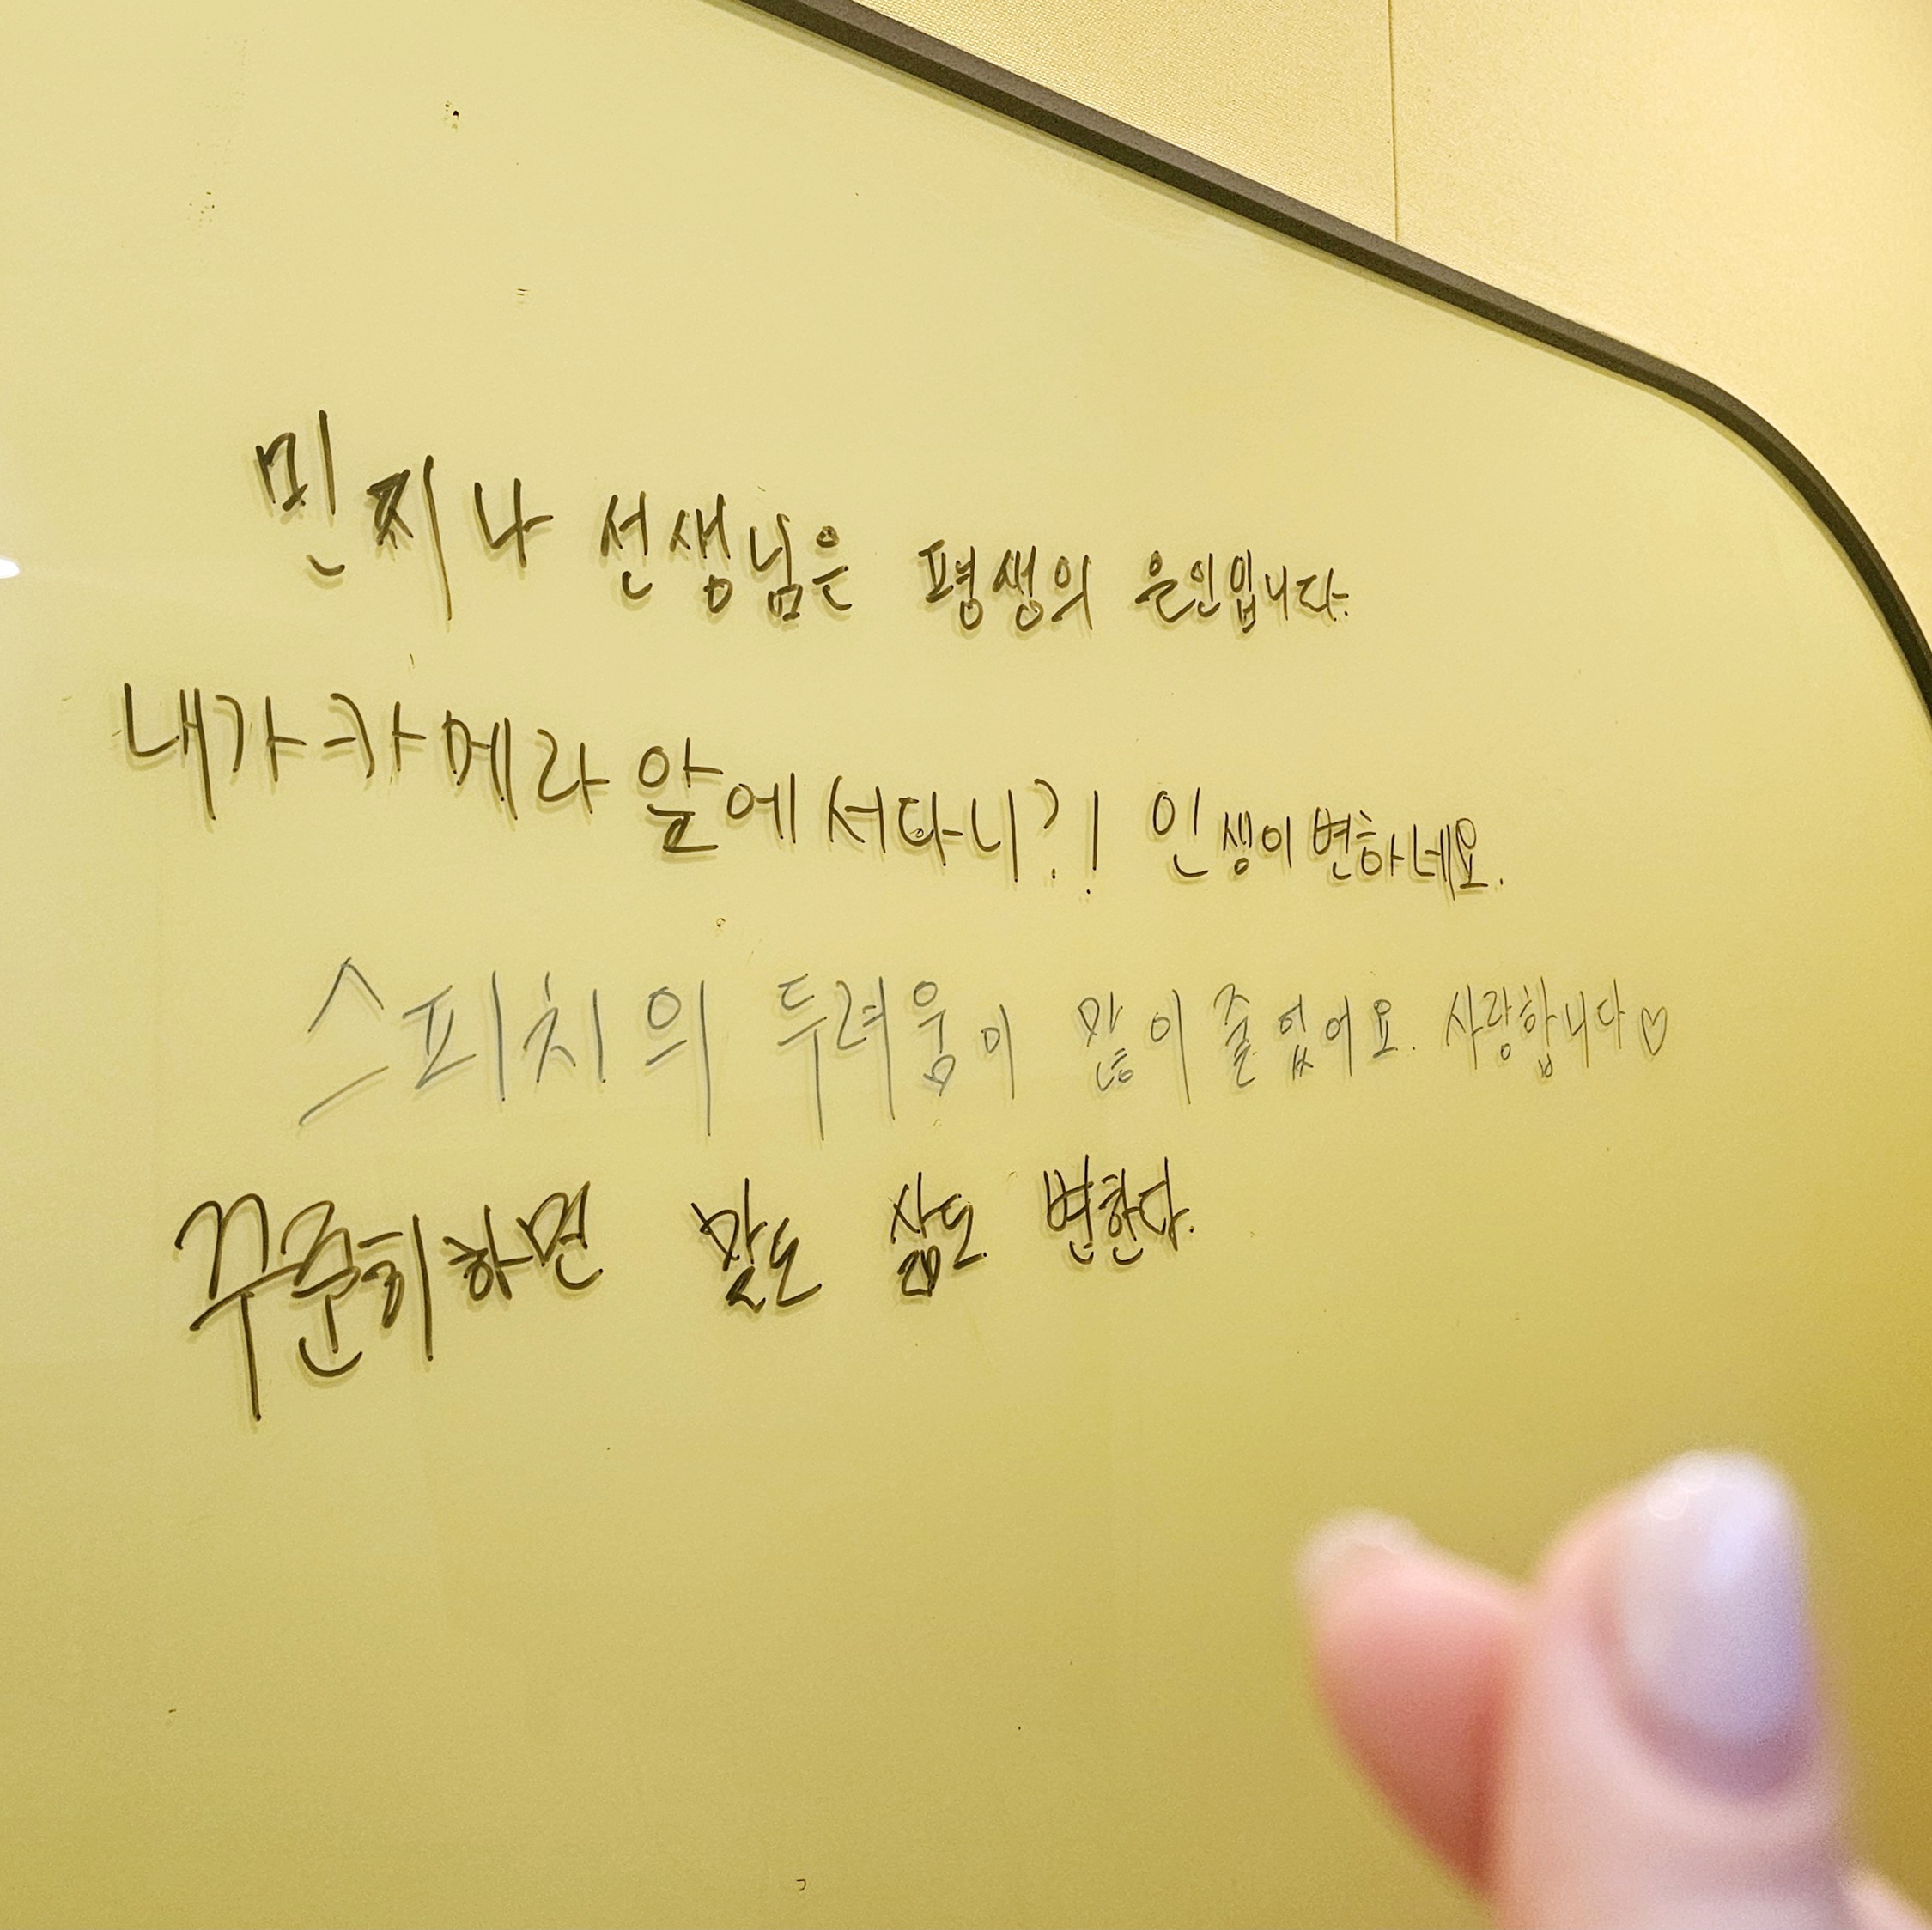 민찌나 선생님은 평생의 은인입니다.
내가 카메라 앞에 서다니?! 인생이 변하네요.
스피치의 두려움이 많이 줄었어요. 사랑합니다♡
꾸준히하면 말도 삶도 변한다.